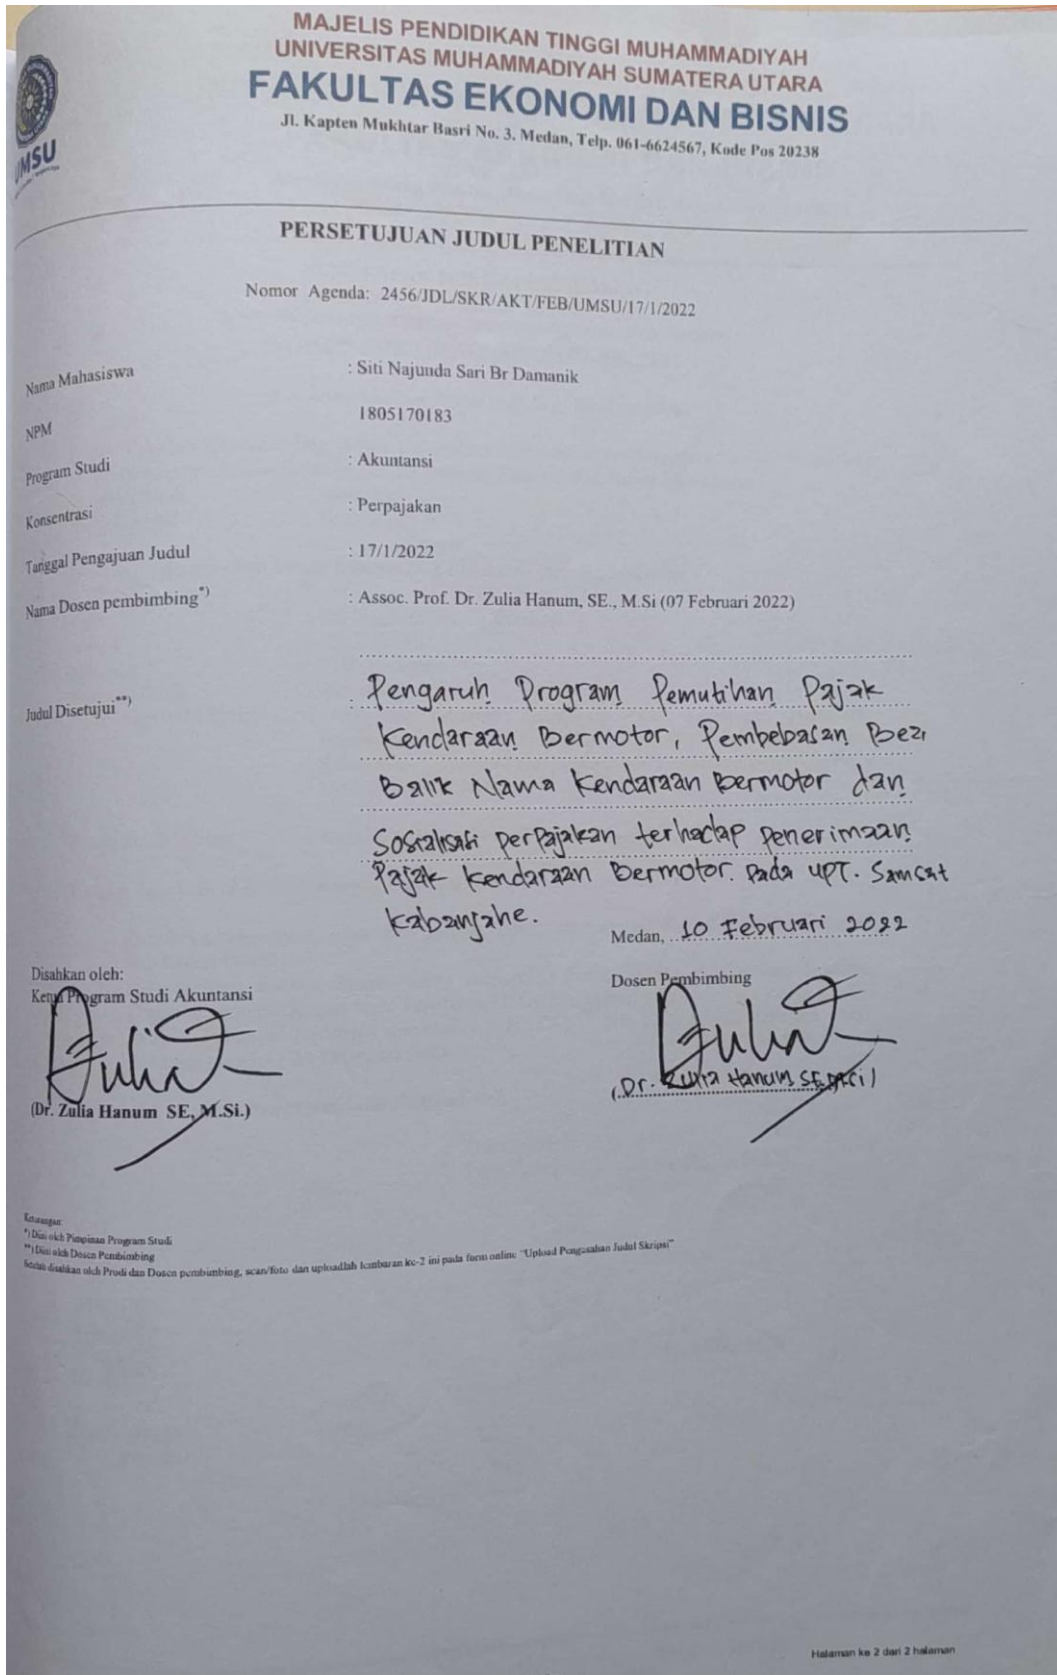 MAJELIS PENDIDIKAN TINGGI MUHAMMADIYAH
UNIVERSITAS MUHAMMADIYAH SUMATERA UTARA
FAKULTAS EKONOMI DAN BISNIS
Jl. Kapten Mukhtar Basri No. 3. Medan, Telp. 061-6624567, Kode Pos 20238
UMSU
PERSETUJUAN JUDUL PENELITIAN
Nomor Agenda: 2456/JDL/SKR/AKT/FEB/UMSU/17/1/2022
Nama Mahasiswa : Siti Najunda Sari Br Damanik
NPM 1805170183
Program Studi : Akuntansi
Konsentrasi : Perpajakan
Tanggal Pengajuan Judul : 17/1/2022
Nama Dosen pembimbing*) : Assoc. Prof. Dr. Zulia Hanum, SE., M.Si (07 Februari 2022)
Judul Disetujui**) : Pengaruh Program Pemutihan Pajak
Kendaraan Bermotor, Pembebasan Bea
Balik Nama Kendaraan Bermotor dan
Sosialisasi perpajakan terhadap penerimaan
Pajak Kendaraan Bermotor. Pada UPT. Samsat
Kabanjahe.
Medan, 10 Februari 2022
Disahkan oleh:
Ketua Program Studi Akuntansi
(Dr. Zulia Hanum SE, M.Si.)
Dosen Pembimbing
(Dr. Zulia Hanum SE. M.Si)
Keterangan:
*) Diisi oleh Pimpinan Program Studi
**) Diisi oleh Dosen Pembimbing
Setelah disahkan oleh Prodi dan Dosen pembimbing, scan/foto dan uploadlah lembaran ke-2 ini pada form online "Upload Pengesahan Judul Skripsi"
Halaman ke 2 dari 2 halaman